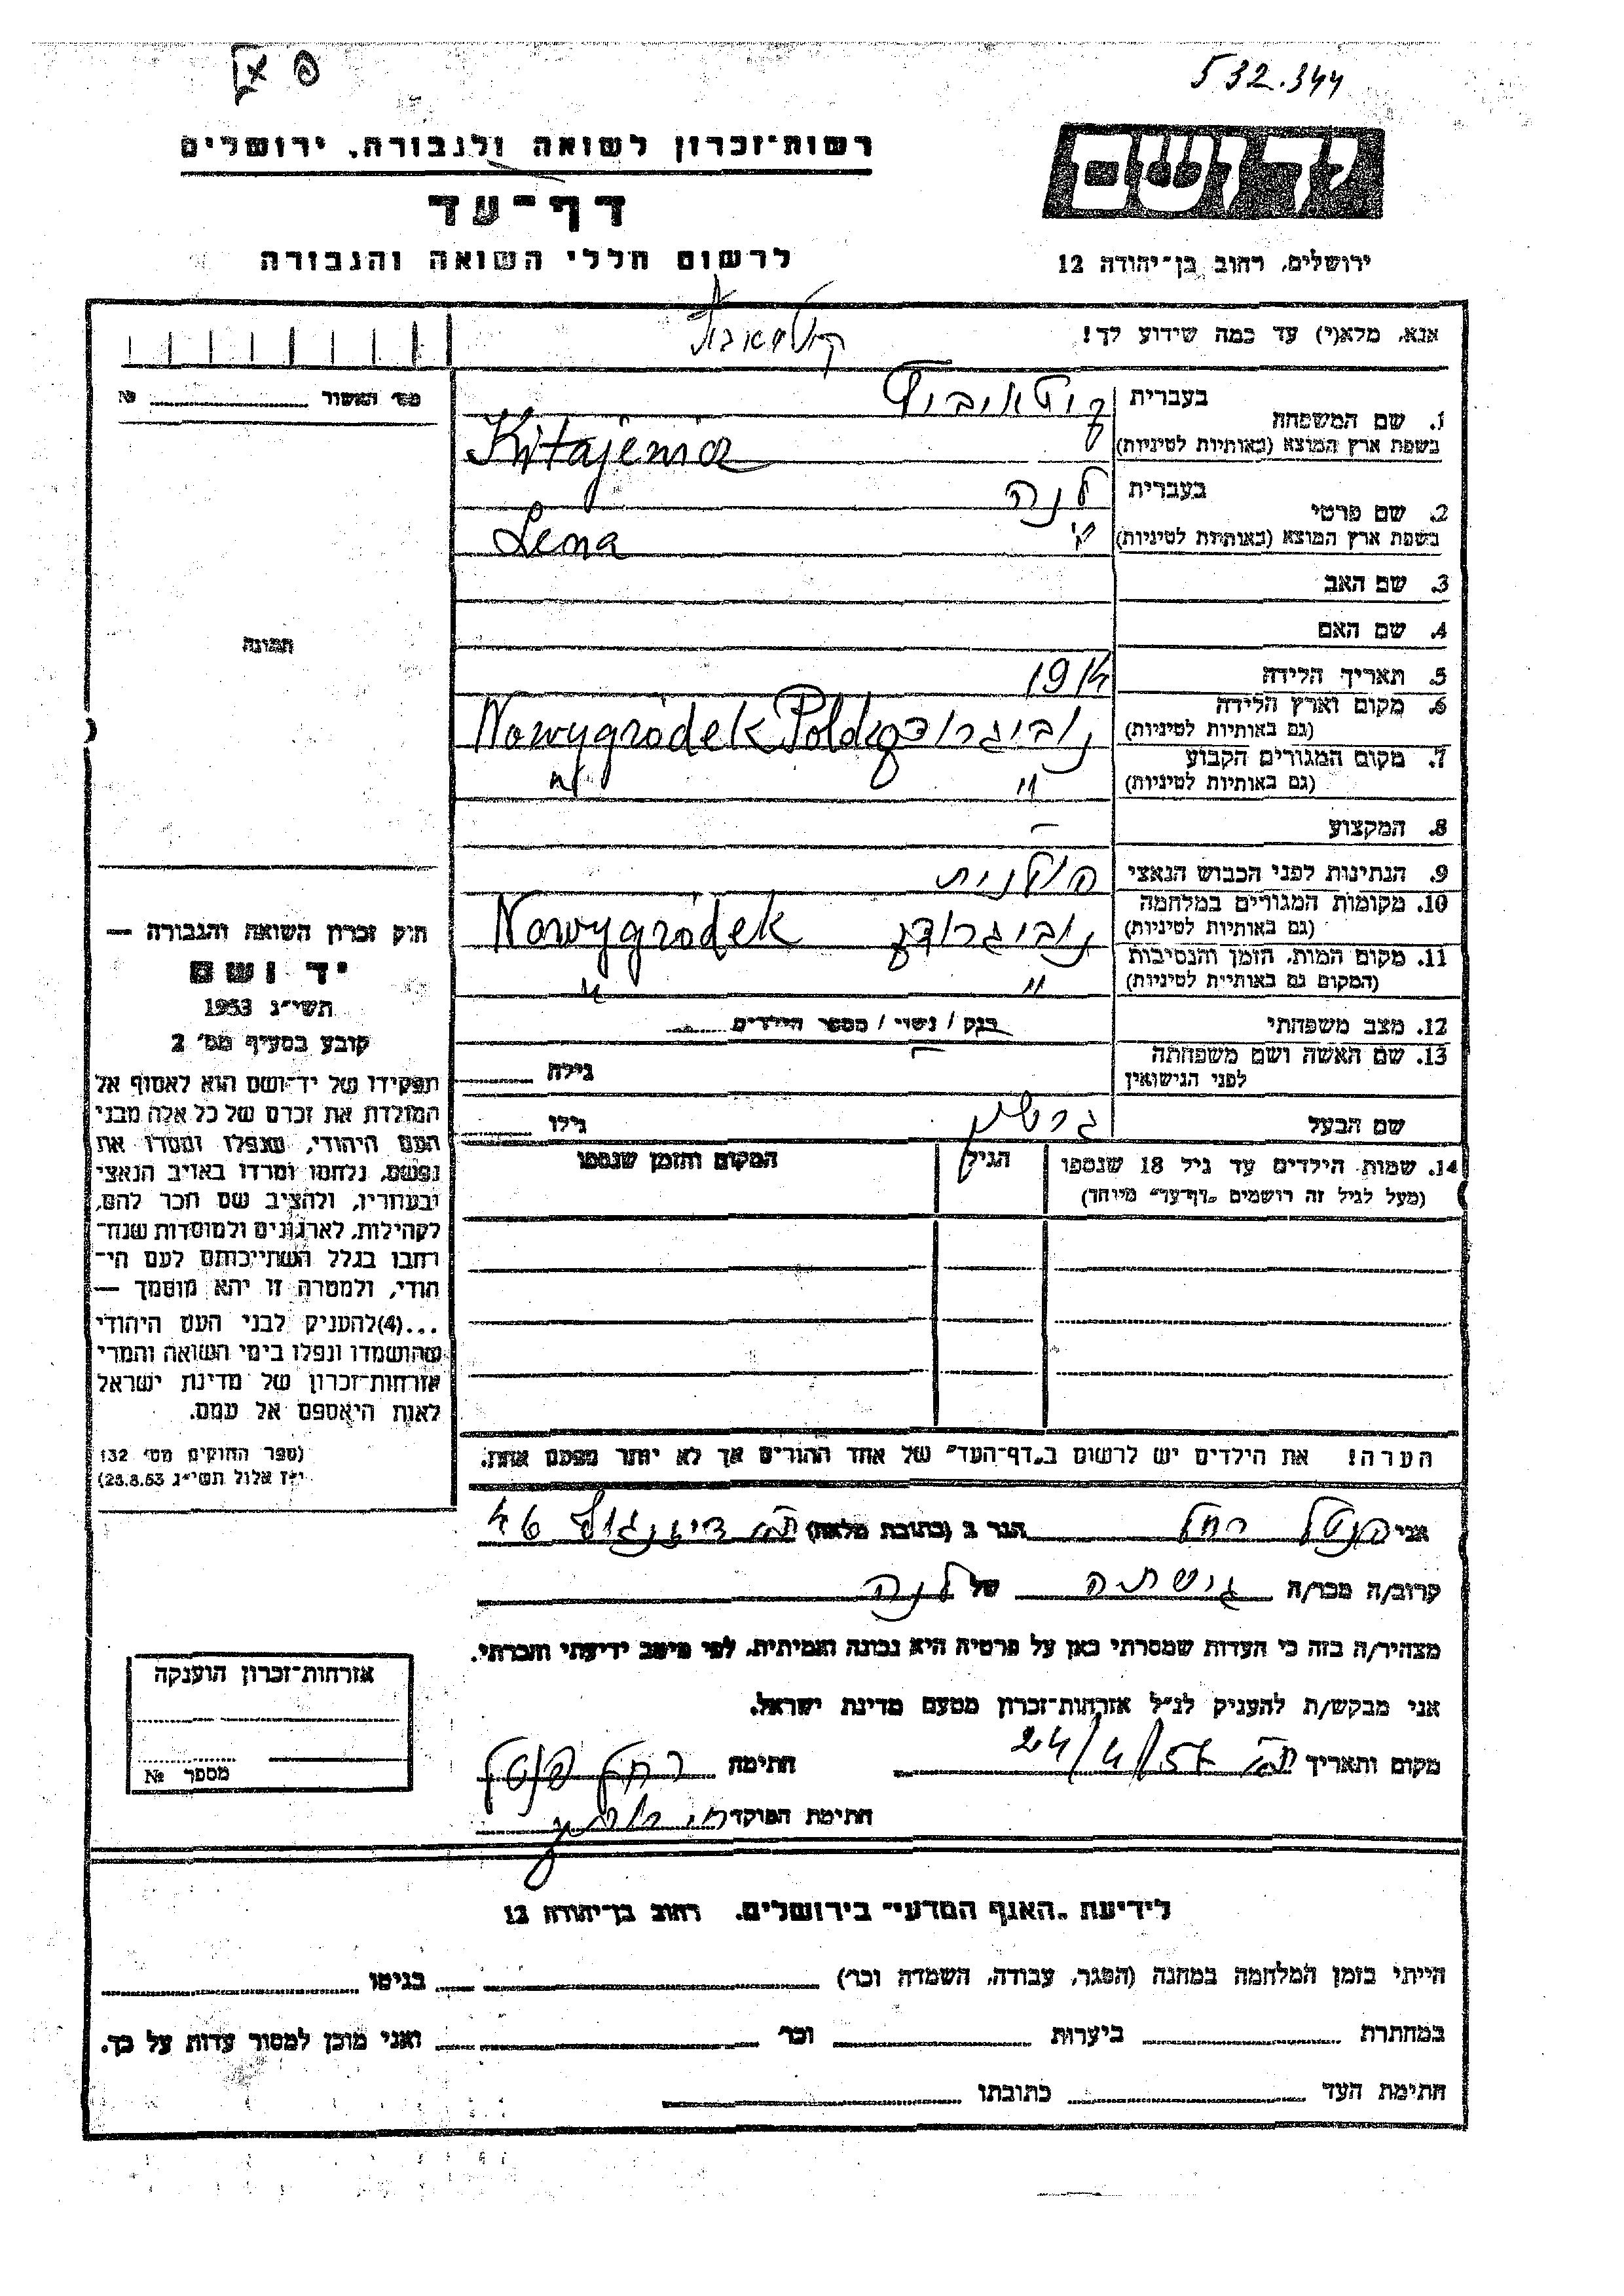 532.344
יד ושם
רשות־זכרון לשואה ולגבורה, ירושלים
דף־עד
לרשום חללי השואה והגבורה
ירושלים, רחוב בן־יהודה 12
אנא, מלא(י) עד כמה שידוע לך!
מס' האשור №
1. שם המשפחה
בעברית
בשפת ארץ המוצא (באותיות לטיניות) Kitajewicz
2. שם פרטי
בעברית לנה
בשפת ארץ המוצא (באותיות לטיניות) Lena
3. שם האב
4. שם האם
תמונה
5. תאריך הלידה 1914
6. מקום וארץ הלידה
(גם באותיות לטיניות) נוביגרודק Nowygródek
7. מקום המגורים הקבוע
(גם באותיות לטיניות) " "
8. המקצוע –
9. הנתינות לפני הכבוש הנאצי פולנית
10. מקומות המגורים במלחמה
(גם באותיות לטיניות) נוביגרודק Nowygródek
11. מקום המות, הזמן והנסיבות
(המקום גם באותיות לטיניות) " "
12. מצב משפחתי רווק / נשוי / מספר הילדים
13. שם האשה ושם משפחתה
לפני הנישואין – גילה
שם הבעל גרשון גילו
14. שמות הילדים עד גיל 18 שנספו
(מעל לגיל זה רושמים „דף־עד" מיוחד)
הגיל
המקום והזמן שנספו
הערה! את הילדים יש לרשום ב„דף־העד" של אחד ההורים אך לא יותר מפעם אחת.
חוק זכרון השואה והגבורה —
יד ושם
תשי"ג 1953
קובע בסעיף מס' 2
תפקידו של יד־ושם הוא לאסוף אל
המולדת את זכרם של כל אלה מבני
העם היהודי, שנפלו ומסרו את
נפשם, נלחמו ומרדו באויב הנאצי
ובעוזריו, ולהציב שם וזכר להם,
לקהילות, לארגונים ולמוסדות שנח־
רבו בגלל השתייכותם לעם הי־
הודי, ולמטרה זו יהא מוסמך —
...(4) להעניק לבני העם היהודי
שהושמדו ונפלו בימי השואה והמרי
אזרחות־זכרון של מדינת ישראל
לאות היאספם אל עמם.
(ספר החוקים מס' 132
י"ז אלול תשי"ג 28.8.53)
אני רחל הגר ב (כתובת מלאה) ת"א דיזנגוף 46
קרוב/ה מכר/ה גיסתה של לנה
מצהיר/ה בזה כי העדות שמסרתי כאן על פרטיה היא נכונה ואמיתית, לפי מיטב ידיעתי והכרתי.
אני מבקש/ת להעניק לנ"ל אזרחות־זכרון מטעם מדינת ישראל.
מקום ותאריך ת"א 24/4/57 חתימה רחל
חתימת הפוקד
אזרחות־זכרון הוענקה
מספר №
לידיעת „האגף המדעי" בירושלים, רחוב בן־יהודה 12
הייתי בזמן המלחמה במחנה (הסגר, עבודה, השמדה וכו') בגיטו
במחתרת ביערות וכו' ואני מוכן למסור עדות על כך.
חתימת העד כתובתו